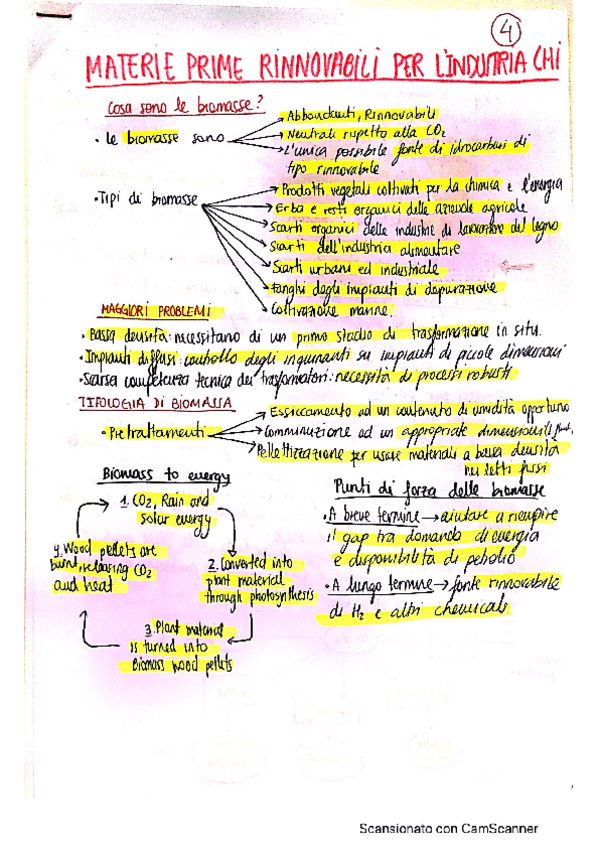 4
MATERIE PRIME RINNOVABILI PER L'INDUSTRIA CHI
Cosa sono le biomasse?
• le biomasse sono
Abbondanti, Rinnovabili
Neutrali rispetto alla CO2
L'unica possibile fonte di idrocarburi di
tipo rinnovabile
• Tipi di biomasse
Prodotti vegetali coltivati per la chimica e l'energia
Erba e resti organici delle aziende agricole
Scarti organici delle industrie di lavorazione del legno
Scarti dell'industria alimentare
Scarti urbani ed industriale
fanghi degli impianti di depurazione
Coltivazione marine.
MAGGIORI PROBLEMI
• Bassa densità: necessitano di un primo stadio di trasformazione in situ.
• Impianti diffusi: controllo degli inquinanti su impianti di piccole dimensioni
• Scarsa competenza tecnica dei trasformatori: necessità di processi robusti
TIPOLOGIA DI BIOMASSA
• Pretrattamenti
Essiccamento ad un contenuto di umidità opportuno
Comminuzione ad un appropriate dimensioni
Pellettizzazione per usare materiali a bassa densità
nei letti fissi
Biomass to energy
1. CO2, Rain and
solar energy
2. Converted into
plant material
through photosynthesis
3. Plant material
is turned into
Biomass wood pellets
4. Wood pellets are
burnt, releasing CO2
and heat
Punti di forza delle biomasse
• A breve termine → aiutare a riempire
il gap tra domanda di energia
e disponibilità di petrolio
• A lungo termine → fonte rinnovabile
di H2 e altri chemicals
Scansionato con CamScanner